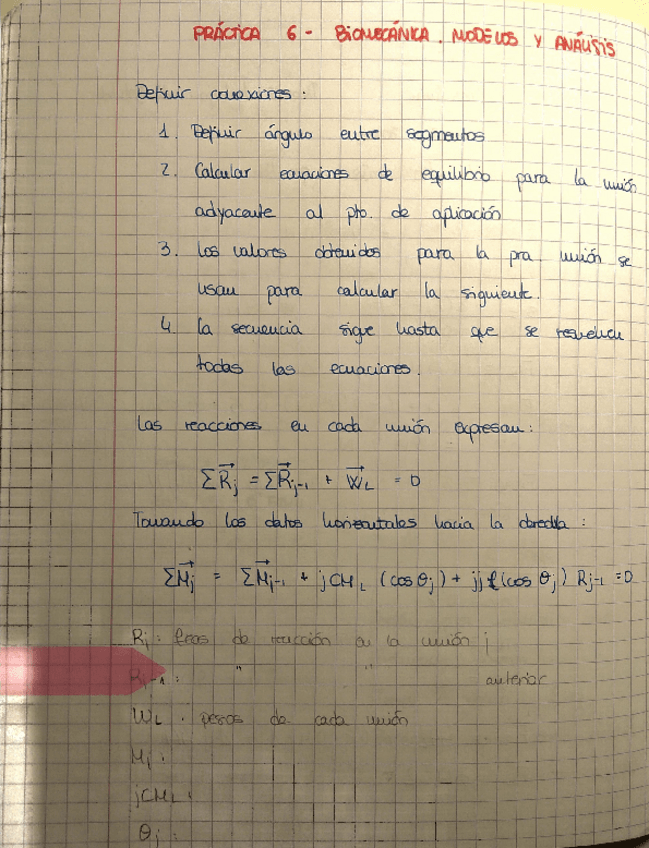 PRÁCTICA 6 - BIOMECÁNICA. MODELOS Y ANÁLISIS
Definir conexiones:
1. Definir ángulo entre segmentos
2. Calcular ecuaciones de equilibrio para la unión
adyacente al pto. de aplicación
3. Los valores obtenidos para la pra unión se
usan para calcular la siguiente.
4. La secuencia sigue hasta que se resuelvan
todas las ecuaciones.
Las reacciones en cada unión expresan:
ΣR⃗j = ΣR⃗j-1 + W⃗L = 0
Tomando los datos horizontales hacia la derecha:
ΣM⃗j = ΣM⃗j-1 + jCML (cos θj) + jjℓ(cos θj) Rj-1 = 0
Rj: fzas de reacción en la unión j
Rj-1: " " anterior
WL: pesos de cada unión
Mj:
jCML:
θj: